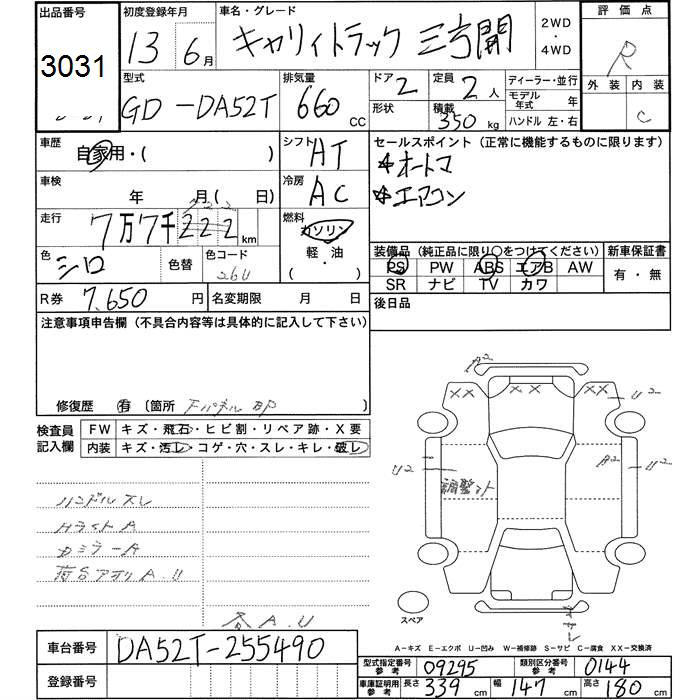 出品番号 初度登録年月 車名・グレード 2WD ・ 4WD 評価点
3031 13 6月 キャリィトラック 三方開 R
型式 排気量 ドア 2 定員 2人 ディーラー・並行 外装 内装
GD-DA52T 660 CC 形状 積載 350 kg モデル年式 年 C
ハンドル 左・右
車歴 自家用・( ) シフト AT セールスポイント (正常に機能するものに限ります)
車検 年 月(日) 冷房 AC ☆オートマ
走行 7万7千222km 燃料 ガソリン ☆エアコン
軽・油
・( )
色 シロ 色替 色コード 26U 装備品 (純正品に限り○をつけてください) 新車保証書
PS PW ABS エアB AW 有・無
SR ナビ TV カワ
R券 7,650円 名変期限 月 日 後日品
注意事項申告欄 (不具合内容等は具体的に記入して下さい)
修復歴 有 〔箇所 Fパネル BP 〕
検査員記入欄 FW キズ・飛石・ヒビ割・リペア跡・X要
内装 キズ・汚レ・コゲ・穴・スレ・キレ・破レ
ハンドルスレ
Hライト A
Dミラー A
荷台アオリ A.U
各 A.U
A2
XX XX U2
U2 調整シート A2 U2
スペア
A-キズ E-エクボ U-凹み W-補修跡 S-サビ C-腐食 XX-交換済
車台番号 DA52T-255490
登録番号
型式指定番号 参考 09295 類別区分番号 参考 0144
車庫証明用 参考 長さ 339 cm 幅 147 cm 高さ 180 cm